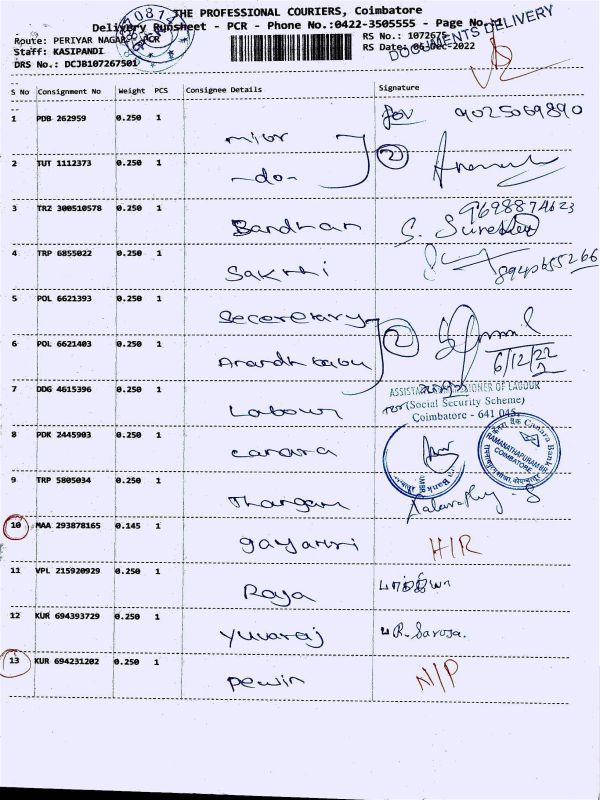 THE PROFESSIONAL COURIERS, Coimbatore
Delivery Runsheet - PCR - Phone No.:0422-3505555 - Page No. 1
Route: PERIYAR NAGAR PCR
RS No.: 1072675
Staff: KASIPANDI
RS Date: 06-Dec-2022
DRS No.: DCJB107267501
DOCUMENTS DELIVERY
S No Consignment No Weight PCS Consignee Details Signature
1 PDB 262959 0.250 1 9025069890
2 TUT 1112373 0.250 1 -do- 2
3 TRZ 300510578 0.250 1 Bandhan 9698874623
S. Suresh
4 TRP 6855022 0.250 1 Sakthi 8940655266
5 POL 6621393 0.250 1 Secoretary 2
6 POL 6621403 0.250 1 Anandh babu 6/12/22
7 DDG 4615396 0.250 1 Labour
ASSISTANT COMMISSIONER OF LABOUR
(Social Security Scheme)
Coimbatore - 641 045.
8 PDK 2445903 0.250 1 canara
Canara Bank
RAMANATHAPURAM BR
COIMBATORE
9 TRP 5805034 0.250 1 Thangam
10 MAA 293878165 0.145 1 gayathri H/R
11 VPL 215920929 0.250 1 Raja
12 KUR 694393729 0.250 1 yuvaraj R. Saroja.
13 KUR 694231202 0.250 1 pewin N/P